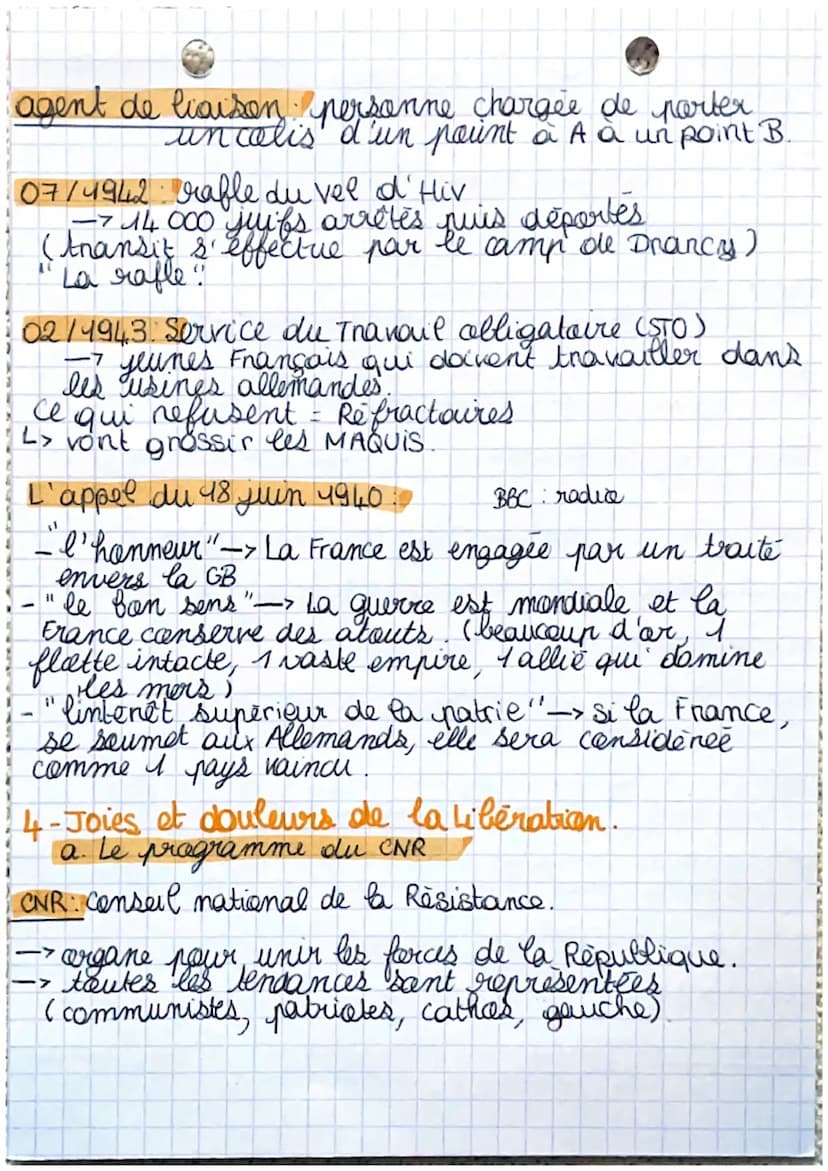 agent de liaison : personne chargée de porter
un colis d'un point à A à un point B.
07/1942 : rafle du vel d'Hiv
→ 14 000 juifs arrêtés puis déportés
(transit s'effectue par le camp de Drancy)
"La rafle".
02/1943 : Service du Travail obligatoire (STO)
→ jeunes Français qui doivent travailler dans
les usines allemandes.
Ce qui refusent = Réfractaires
↳ vont grossir les MAQUIS.
L'appel du 18 juin 1940 : BBC : radio
- "l'honneur" → La France est engagée par un traité
envers la GB
- "le bon sens" → La guerre est mondiale et la
France conserve des atouts. (beaucoup d'or, 1
flotte intacte, 1 vaste empire, 1 allié qui domine
les mers)
- "lintérêt supérieur de la patrie" → Si la France,
se soumet aux Allemands, elle sera considérée
comme 1 pays vaincu.
4 - Joies et douleurs de la Libération.
a. Le programme du CNR
CNR : Conseil national de la Résistance.
→ organe pour unir les forces de la République.
→ toutes les tendances sont représentées
(communistes, patriotes, cathos, gauche)